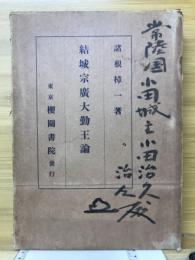 諸根樟一著
結城宗廣大勤王論
東京 櫻園書院發行
常陸國小田城主小田治久及
治